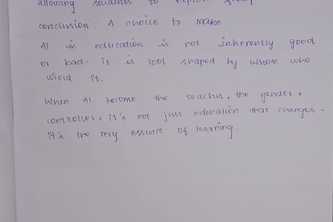 allowing students to explore
conclusion. A choice to make
AI in education is not inherently good
or bad. It is tool shaped by whom who
wield it.
When AI become the teacher, the gender,
controller, it's not just education that changes.
It's the very essence of learning.